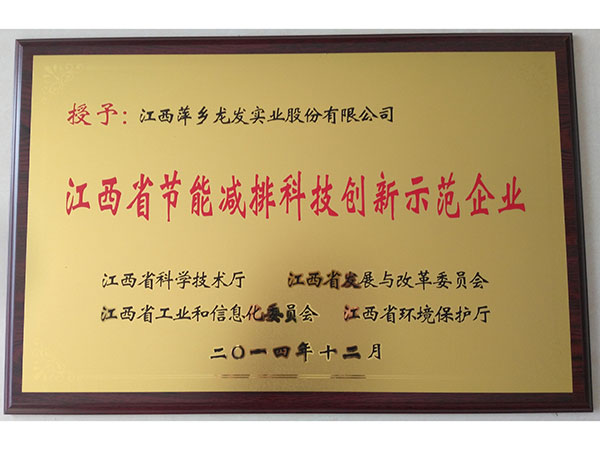 授予：江西萍乡龙发实业股份有限公司
江西省节能减排科技创新示范企业
江西省科学技术厅 江西省发展与改革委员会
江西省工业和信息化委员会 江西省环境保护厅
二〇一四年十二月